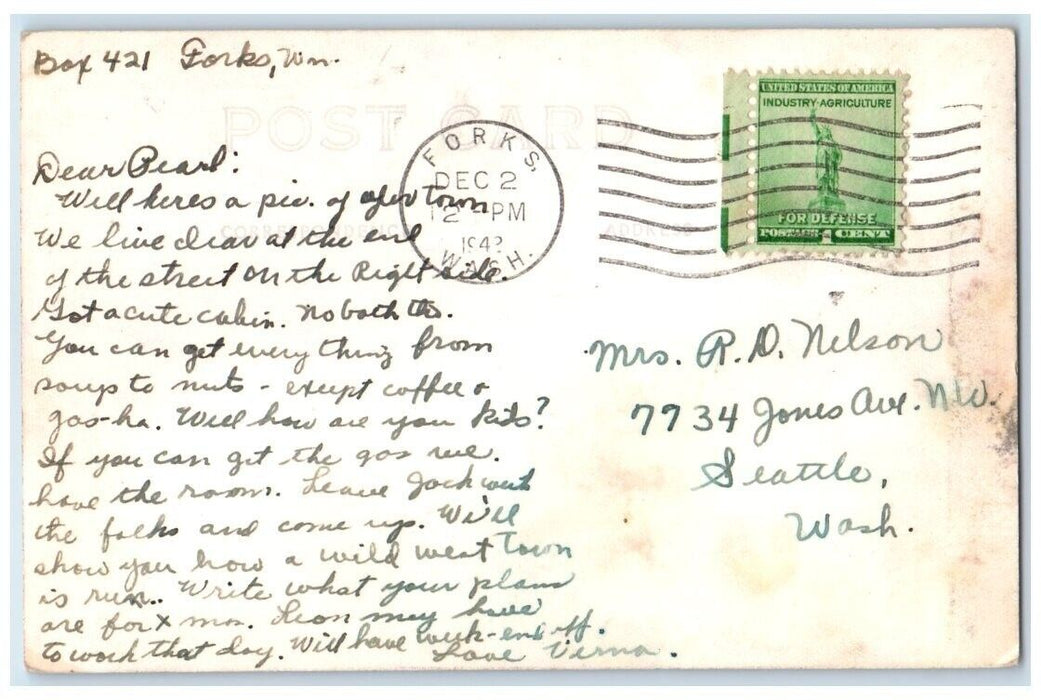 Box 421 Forks, Wn.
POST CARD
FORKS,
DEC 2
12 - PM
194
WASH.
UNITED STATES OF AMERICA
INDUSTRY·AGRICULTURE
FOR DEFENSE
POSTAGE 1 CENT
CORRESPONDENCE
ADDRESS
Dear Pearl:
Well heres a pic. of our town
We live clear at the end
of the street on the Right side.
Got a cute cabin. No bath tho.
You can get every thing from
soup to nuts - except coffee &
gas-ha. Well how are you kids?
If you can get the gas we.
have the room. Leave Jack with
the folks and come up. We'll
show you how a wild west town
is run.. Write what your plans
are for X mas. Leon may have
to work that day. Will have week-end off.
Love Verna.
Mrs. R. D. Nelson
7734 Jones Ave. N.W.
Seattle,
Wash.